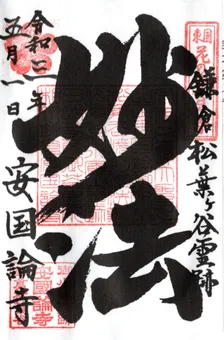 鎌倉松葉ヶ谷霊跡
妙法
令和元年
五月一日
安国論寺
安國論寺